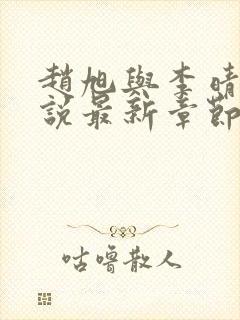 趙旭與李晴
說最新章節
咕嚕散人